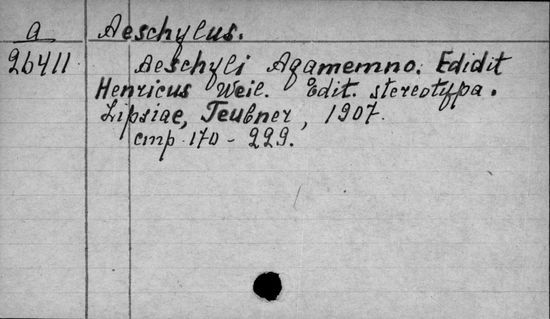 a Aeschylus.
26411 Aeschyli Agamemno. Edidit
Henricus Weil. Edit. stereotypa.
Lipsiae, Teubner, 1907.
стр 170 - 229.